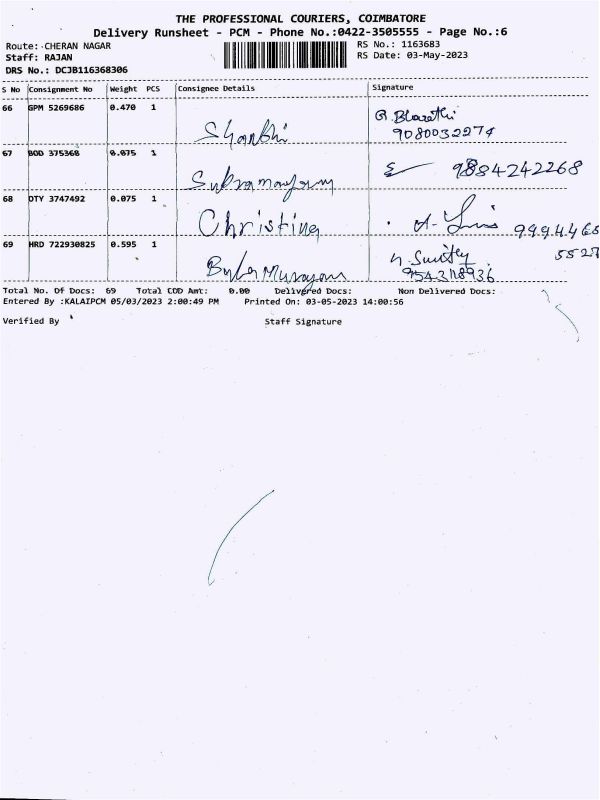 THE PROFESSIONAL COURIERS, COIMBATORE
Delivery Runsheet - PCM - Phone No.:0422-3505555 - Page No.:6
Route: CHERAN NAGAR RS No.: 1163683
Staff: RAJAN RS Date: 03-May-2023
DRS No.: DCJB116368306
S No Consignment No Weight PCS Consignee Details Signature
66 GPM 5269686 0.470 1
Shanthi
R. Bharathi
9080032274
67 BOD 375368 0.075 1
Subramaniyam
9884242268
68 DTY 3747492 0.075 1
Christina
69 HRD 722930825 0.595 1
Total No. Of Docs: 69 Total COD Amt: 0.00 Delivered Docs: Non Delivered Docs:
Entered By :KALAIPCM 05/03/2023 2:00:49 PM Printed On: 03-05-2023 14:00:56
Verified By Staff Signature